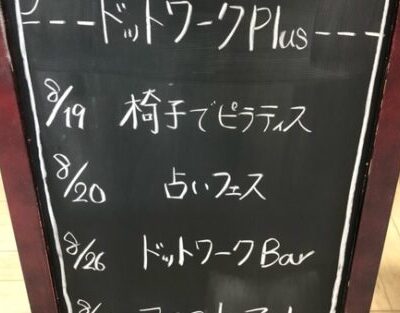 ドットワークPlus
8/19 椅子でピラティス
8/20 占いフェス
8/26 ドットワークBar